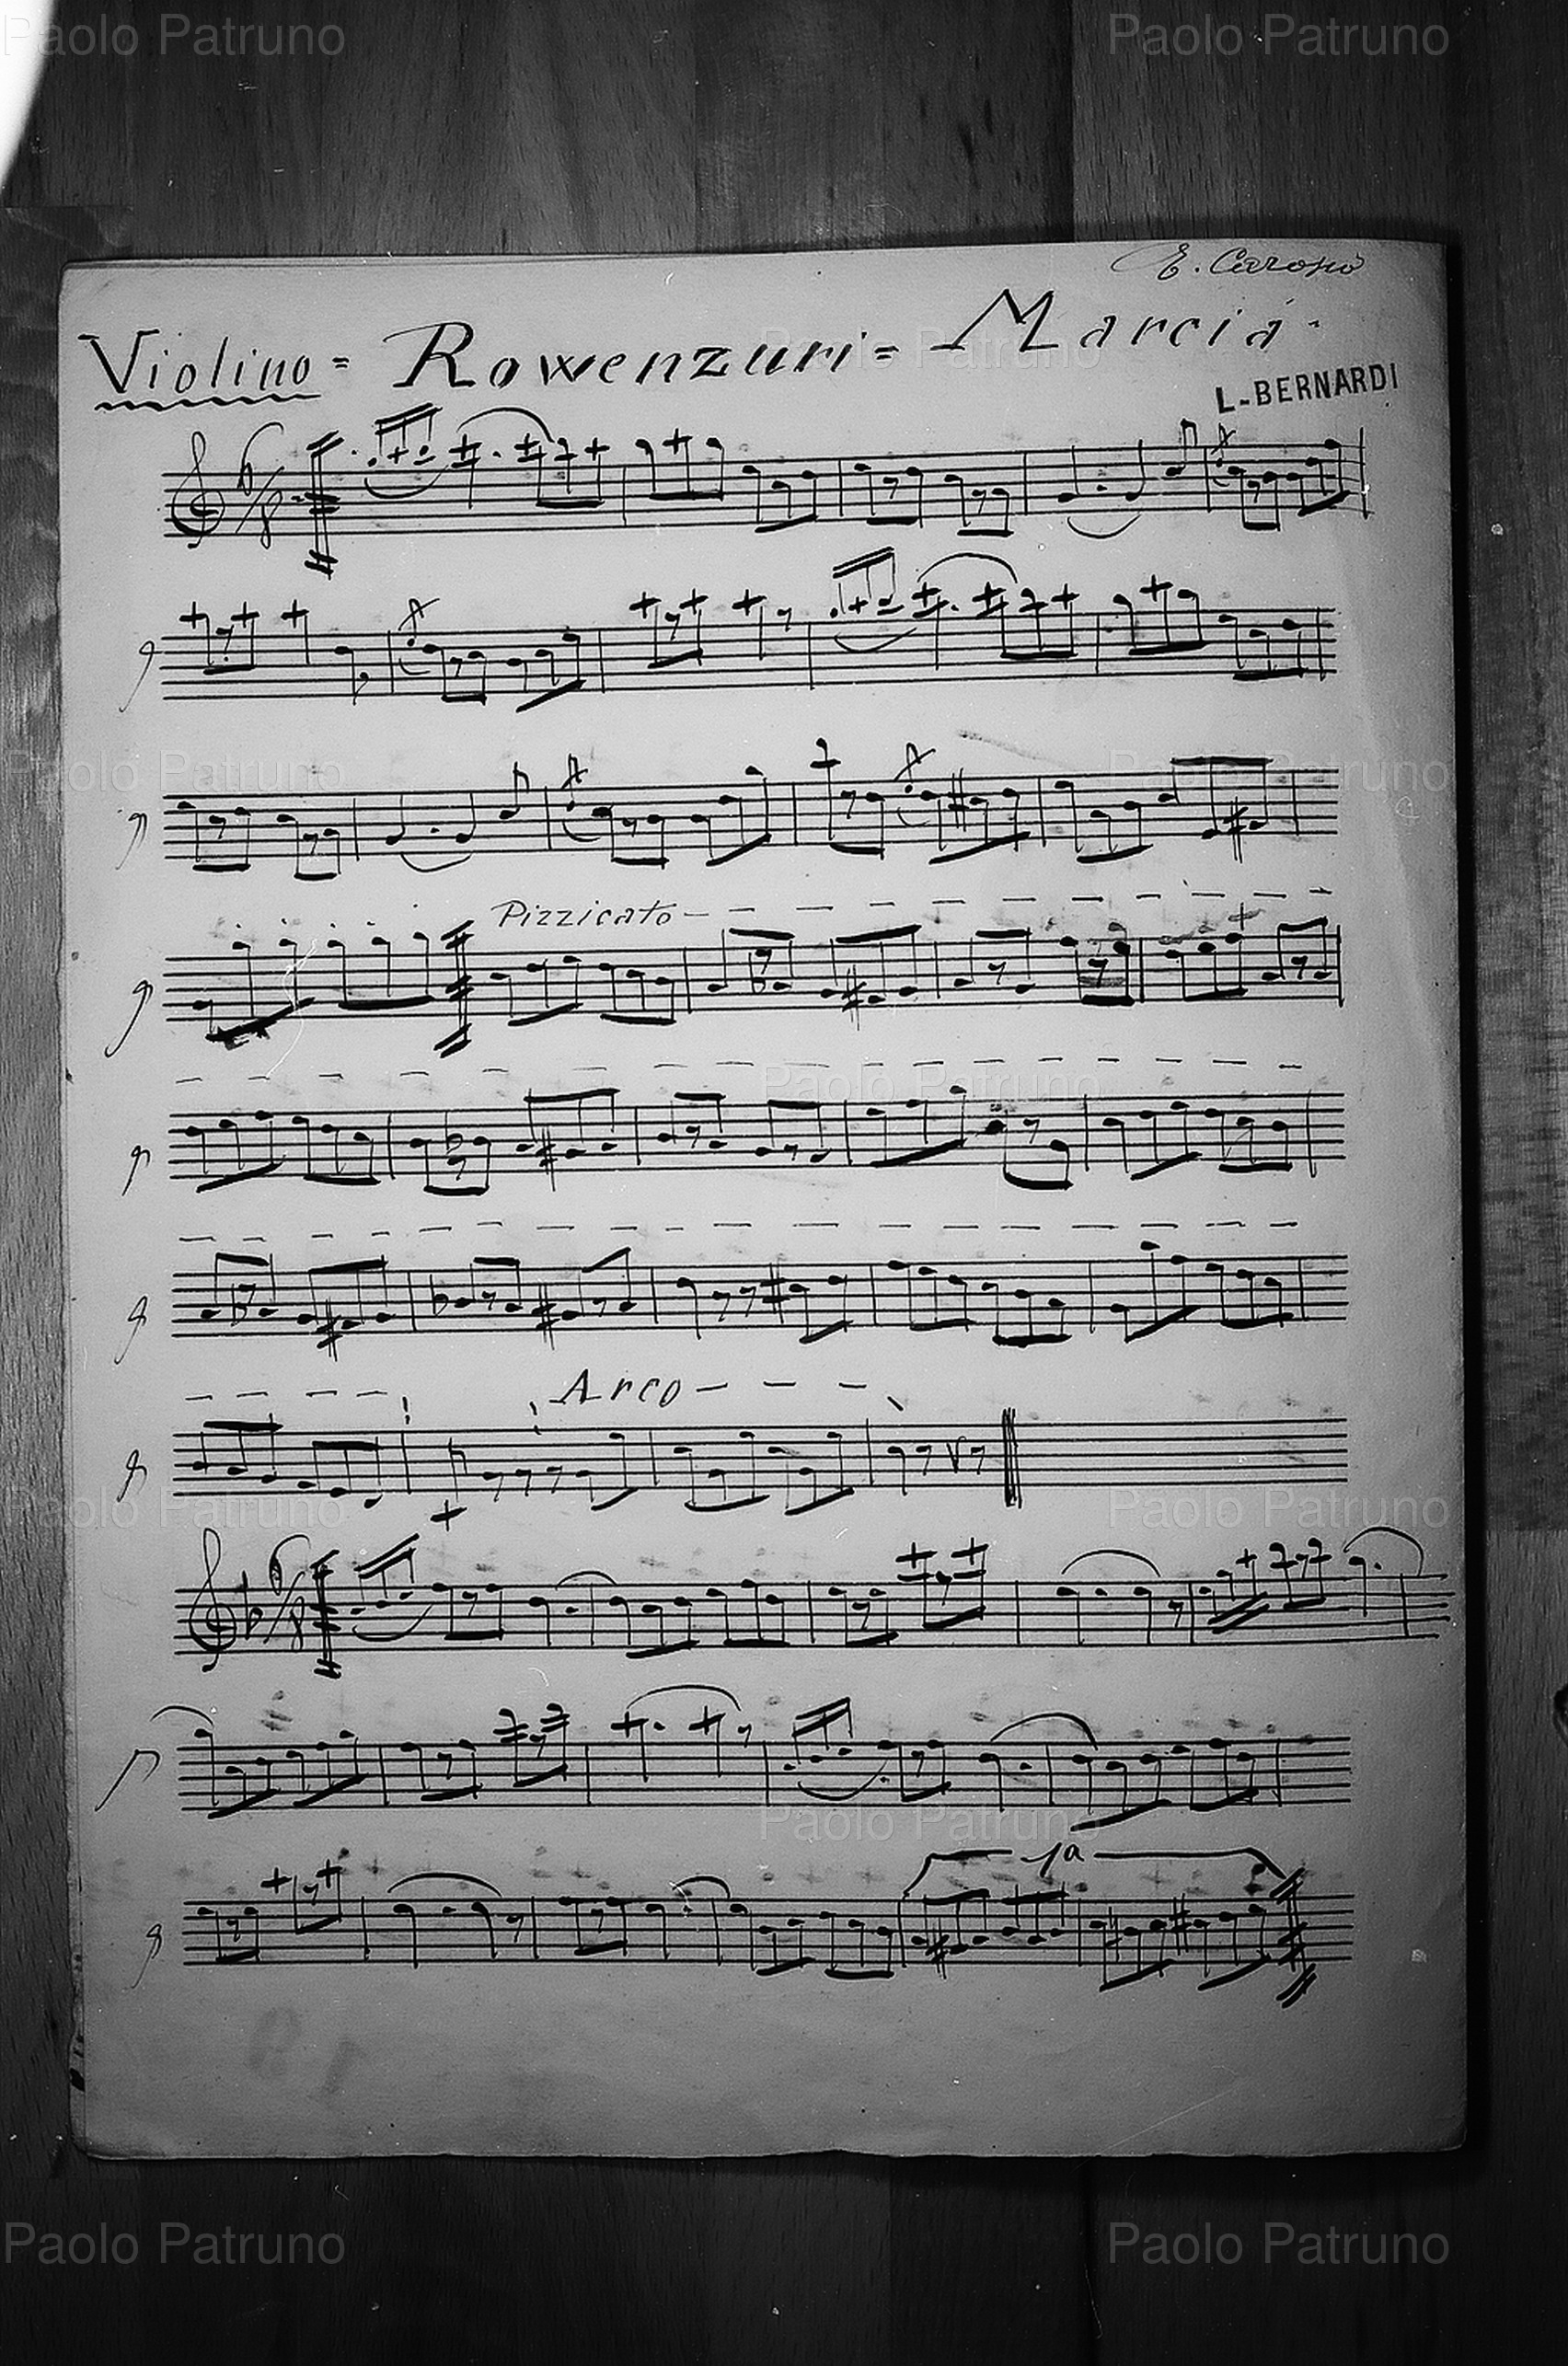 Paolo Patruno Paolo Patruno
Violino = Rowenzuri = Marcia
Paolo Patruno
L-BERNARDI
6/8
Paolo Patruno Paolo Patruno
Pizzicato
Paolo Patruno
Arco
Paolo Patruno Paolo Patruno
6/8
Paolo Patruno
1a
Paolo Patruno Paolo Patruno